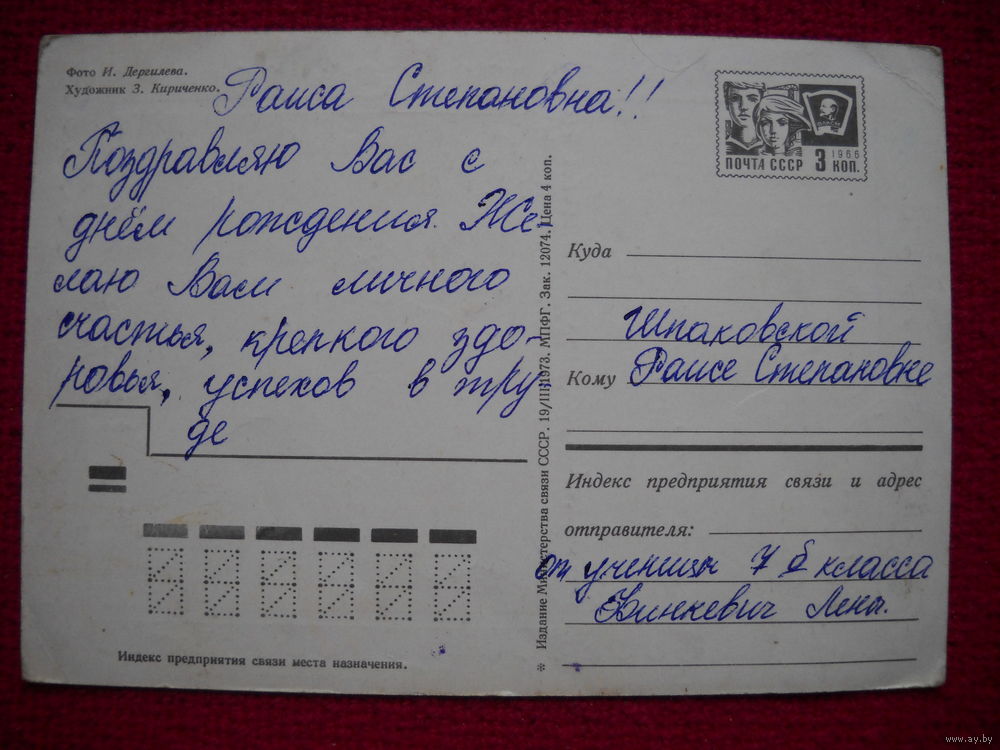 Фото И. Дергилева.
Художник З. Кириченко.
Раиса Степановна!!
Поздравляю Вас с
днём рождения. Же-
лаю Вам личного
счастья, крепкого здо-
ровья, успехов в тру-
де
Индекс предприятия связи места назначения.
* Издание Министерства связи СССР. 19/III-1973. МПФГ. Зак. 12074. Цена 4 коп.
ПОЧТА СССР 3 КОП.
1966
Куда
Шпаковской
Кому Раисе Степановне
Индекс предприятия связи и адрес
отправителя:
от ученицы 7 б класса
Звинкевич Лены.
www.ay.by